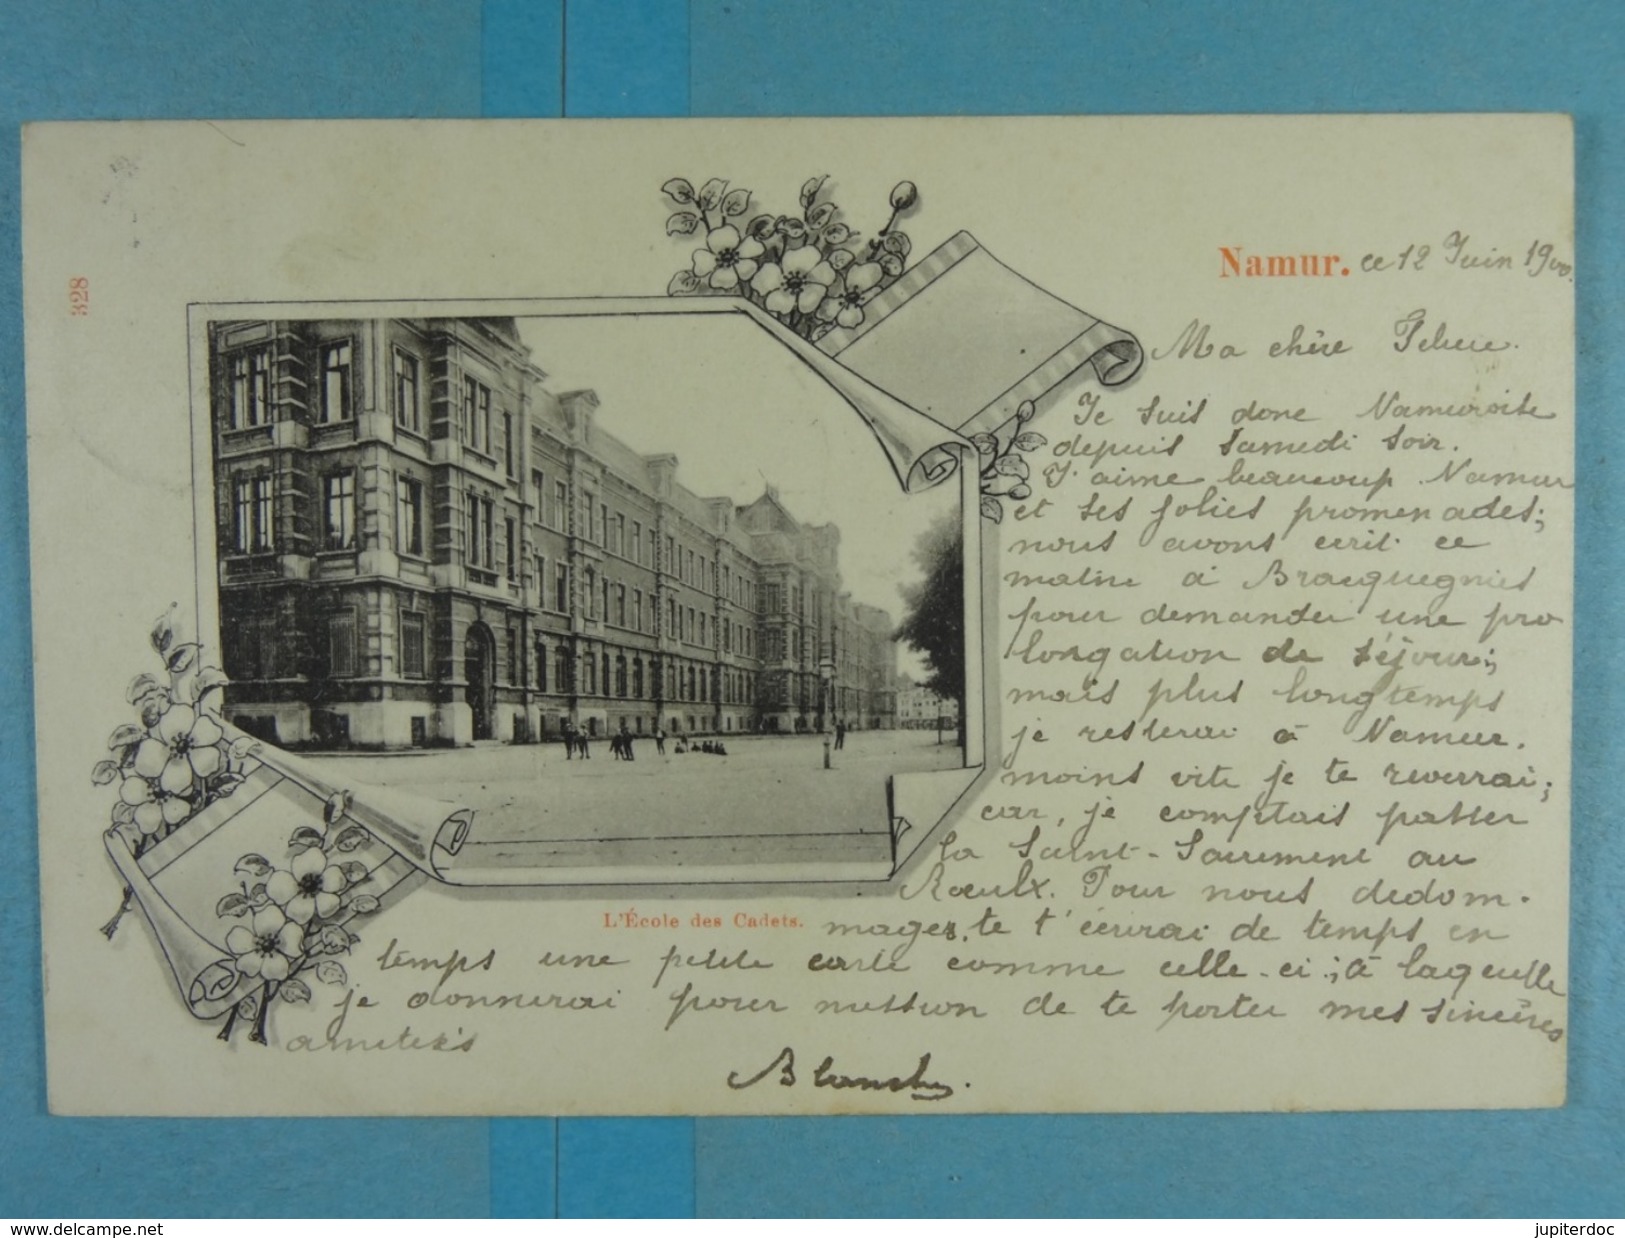 328
Namur. ce 12 Juin 1900.
Ma chère
Je suis donc Namuroise
depuis Samedi soir.
J'aime beaucoup Namur
et ses jolies promenades;
nous avons écrit ce
matin à Bracquegnies
pour demander une pro
longation de séjour;
mais plus longtemps
je resterai à Namur.
moins vite je te reverrai;
car, je comptais passer
la Saint-Sacrement au
Roeulx. Pour nous dedom-
L'École des Cadets.
mager, je t'écrirai de temps en
temps une petite carte comme celle-ci; à laquelle
je donnerai pour mission de te porter mes sincères
amitiés
Blanche.
www.delcampe.net
jupiterdoc